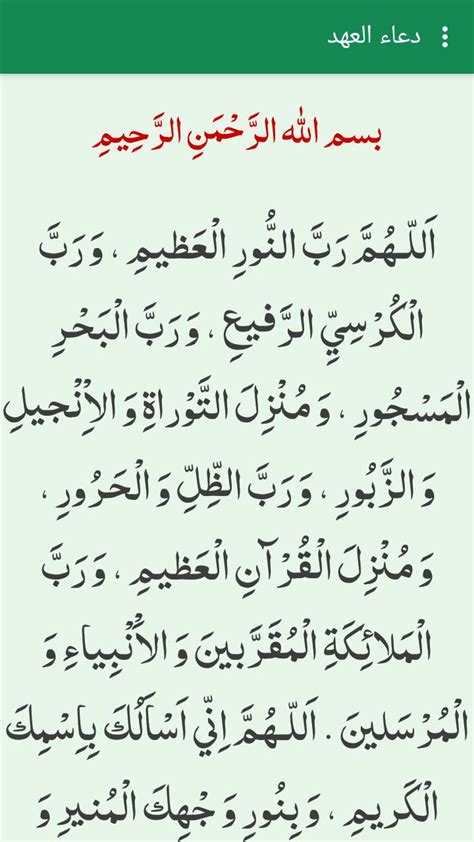 دعاء العهد
بسم الله الرَّحْمَنِ الرَّحِيمِ
اَللّـهُمَّ رَبَّ النُّورِ الْعَظيمِ ، وَ رَبَّ
الْكُرْسِيِّ الرَّفيعِ ، وَ رَبَّ الْبَحْرِ
الْمَسْجُورِ ، وَ مُنْزِلَ التَّوْراةِ وَ الاِْنْجيلِ
وَ الزَّبُورِ ، وَ رَبَّ الظِّلِّ وَ الْحَرُورِ ،
وَ مُنْزِلَ الْقُرْآنِ الْعَظيمِ ، وَ رَبَّ
الْمَلائِكَةِ الْمُقَرَّبينَ وَ الأَنْبِياءِ وَ
الْمُرْسَلينَ . اَللّـهُمَّ اِنّي اَسْاَلُكَ بِاِسْمِكَ
الْكَريمِ ، وَ بِنُورِ وَجْهِكَ الْمُنيرِ وَ